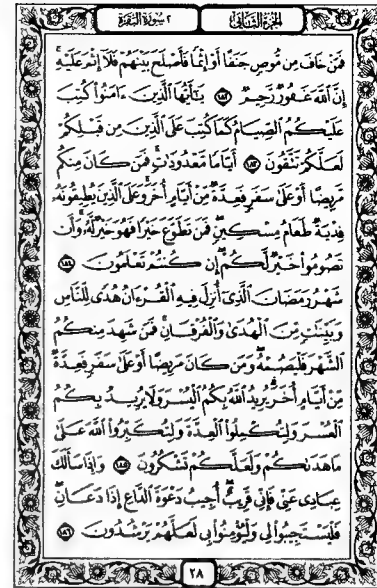 الجزء الثاني ٢ سورة البقرة
فمن خاف من موص جنفا أو إثما فأصلح بينهم فلا إثم عليه
إن الله غفور رحيم ١٨٢ يأيها الذين ءامنوا كتب
عليكم الصيام كما كتب على الذين من قبلكم
لعلكم تتقون ١٨٣ أياما معدودات فمن كان منكم
مريضا أو على سفر فعدة من أيام أخر وعلى الذين يطيقونه
فدية طعام مسكين فمن تطوع خيرا فهو خير له وأن
تصوموا خير لكم إن كنتم تعلمون ١٨٤
شهر رمضان الذي أنزل فيه القرءان هدى للناس
وبينت من الهدى والفرقان فمن شهد منكم
الشهر فليصمه ومن كان مريضا أو على سفر فعدة
من أيام أخر يريد الله بكم اليسر ولا يريد بكم
العسر ولتكملوا العدة ولتكبروا الله على
ما هدىكم ولعلكم تشكرون ١٨٥ وإذا سألك
عبادي عني فإني قريب أجيب دعوة الداع إذا دعان
فليستجيبوا لي وليؤمنوا بي لعلهم يرشدون ١٨٦
٢٨